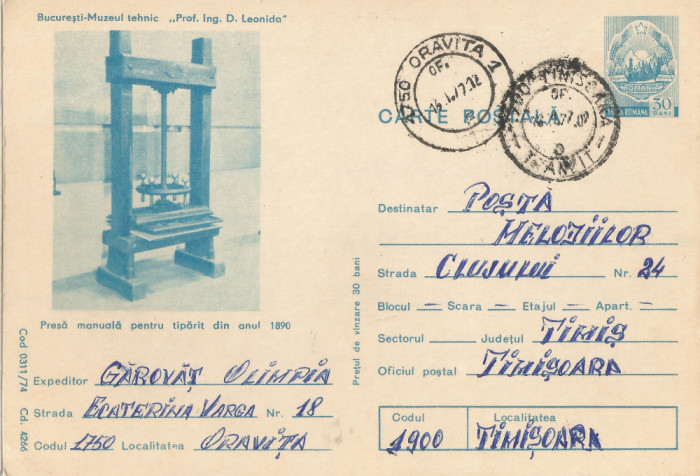 București-Muzeul tehnic „Prof. Ing. D. Leonida"
Presă manuală pentru tipărit din anul 1890
Cod 0311/74 Cd. 4266
Expeditor GĂROVĂȚ OLIMPIA
Strada ECATERINA VARGA Nr. 18
Codul 1750 Localitatea ORAVIȚA
Prețul de vînzare 30 bani
ORAVITA 1
OF.
TIMISOARA
OF.
TRANZIT
ROMANIA
POSTA ROMANA 30 BANI
CARTE POȘTALĂ
Destinatar POȘTA
MELODIILOR
Strada CLUJULUI Nr. 24
Blocul — Scara — Etajul — Apart. —
Sectorul — Județul TIMIȘ
Oficiul poștal TIMIȘOARA
Codul Localitatea
1900 TIMIȘOARA